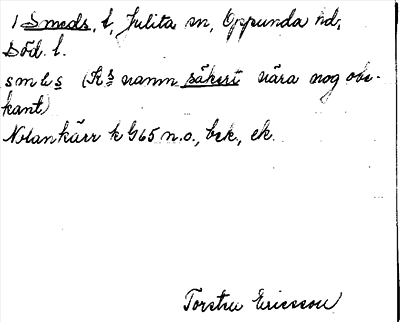 1 Smeds, t, Julita sn, Oppunda hd,
Söd. l.
smẹs (Ks namn säkert nära nog obe-
kant)
Nolankärr k G65 n.o., bek, ek.
Torsten Ericsson